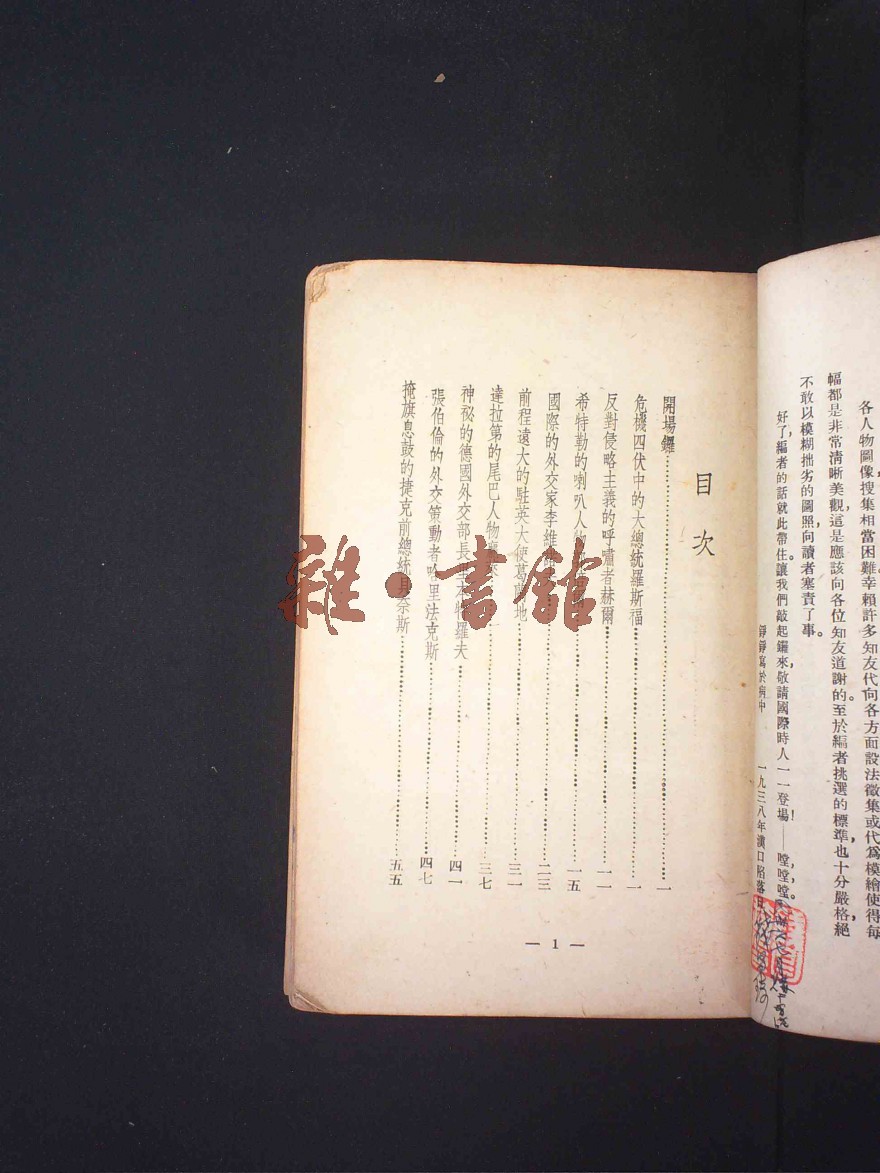 各人物圖像，搜集相當困難，幸賴許多知友代向各方面設法徵集或代爲模繪使得每
幅都是非常清晰美觀，這是應該向各位知友道謝的。至於編者挑選的標準，也十分嚴格，絕
不敢以模糊拙劣的圖照，向讀者塞責了事。
好了，編者的話就此帶住。讓我們敲起鑼來，敬請國際時人一一登場！——噹，噹，噹
錚錚寫於病中 一九三八年漢口陷落
目次
開場鑼 一
危機四伏中的大總統羅斯福 一
反對侵略主義的呼嘯者赫爾 一一
希特勒的喇叭人物 一五
國際的外交家李維 二三
前程遠大的駐英大使葛 地 三一
達拉第的尾巴人物 三七
神祕的德國外交部長 本特羅夫 四一
張伯倫的外交策動者哈里法克斯 四七
掩旗息鼓的捷克前總統貝奈斯 五五
— 1 —
雜·書館